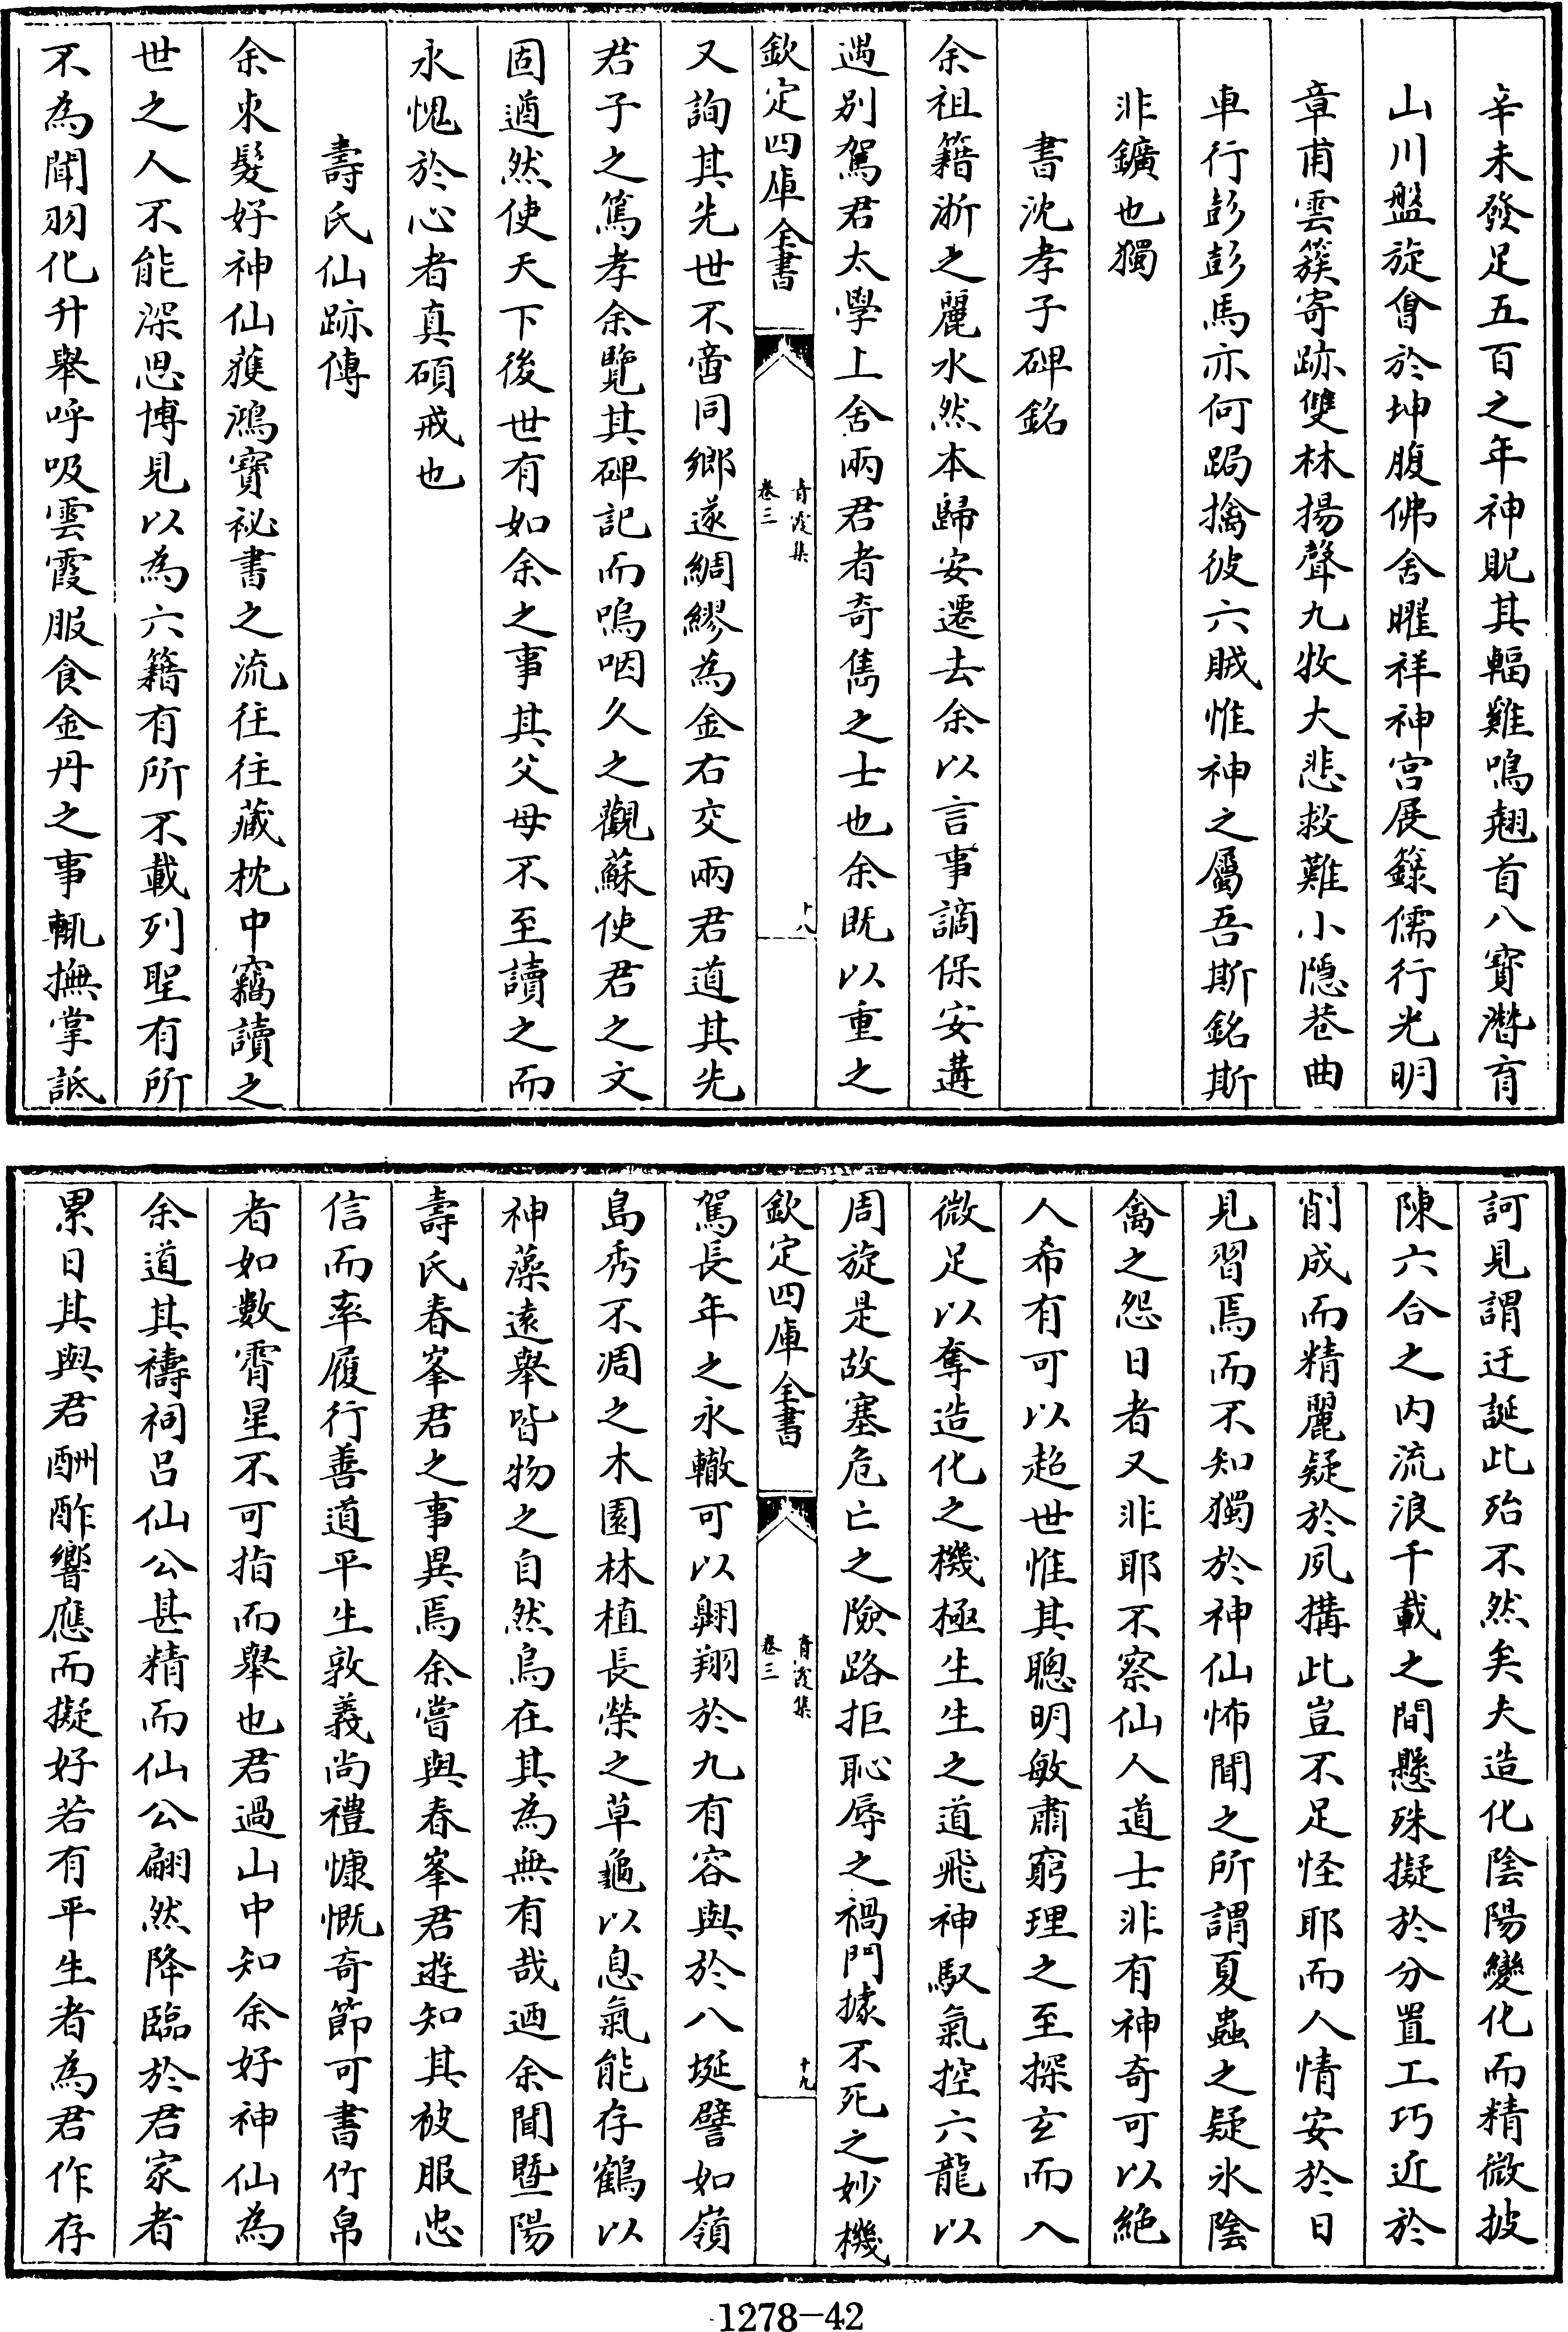 辛未發足五百之年神貺其輻雞鳴翹首八寶潛育
山川盤旋會於坤腹佛舍曜祥神宮展籙儒行光明
章甫雲簇寄跡雙林揚聲九牧大悲救難小隱巷曲
車行彭彭馬亦何跼擒彼六賊惟神之屬吾斯銘斯
非鑛也獨
書沈孝子碑銘
余祖籍浙之麗水然本歸安遷去余以言事謫保安遘
遇別駕君太學上舍兩君者奇雋之士也余既以重之
欽定四庫全書
青霞集
卷三
十八
又詢其先世不啻同鄉遂綢繆為金石交兩君道其先
君子之篤孝余覽其碑記而嗚咽久之觀蘇使君之文
固遒然使天下後世有如余之事其父母不至讀之而
永愧於心者真碩戒也
壽氏仙跡傳
余束髮好神仙蓰鴻寶祕書之流往往藏枕中竊讀之
世之人不能深思博見以為六籍有所不載列聖有所
不為聞羽化升舉呼吸雲霞服食金丹之事輒撫掌詆
訶見謂迂誕此殆不然矣夫造化陰陽變化而精微披
陳六合之內流浪千載之間懸殊擬於分置工巧近於
削成而精麗疑於夙搆此豈不足怪耶而人情安於日
見習焉而不知獨於神仙怖聞之所謂夏蟲之疑氷陰
禽之怨日者又非耶不察仙人道士非有神奇可以絕
人希有可以超世惟其聰明敏肅窮理之至探玄而入
微足以奪造化之機極生生之道飛神馭氣控六龍以
周旋是故塞危亡之險路拒恥辱之禍門據不死之妙機
欽定四庫全書
青霞集
卷三
十九
駕長年之永轍可以翺翔於九有容與於八埏譬如嶺
島秀不凋之木園林植長榮之草龜以息氣能存鶴以
神藻遠舉皆物之自然烏在其為無有哉迺余聞暨陽
壽氏春峯君之事異焉余嘗與春峯君遊知其被服忠
信而率履行善道平生敦義尚禮慷慨奇節可書竹帛
者如數霄星不可指而舉也君過山中知余好神仙為
余道其禱祠呂仙公甚精而仙公翩然降臨於君家者
累日其與君酬酢響應而擬好若有平生者為君作存
1278-42